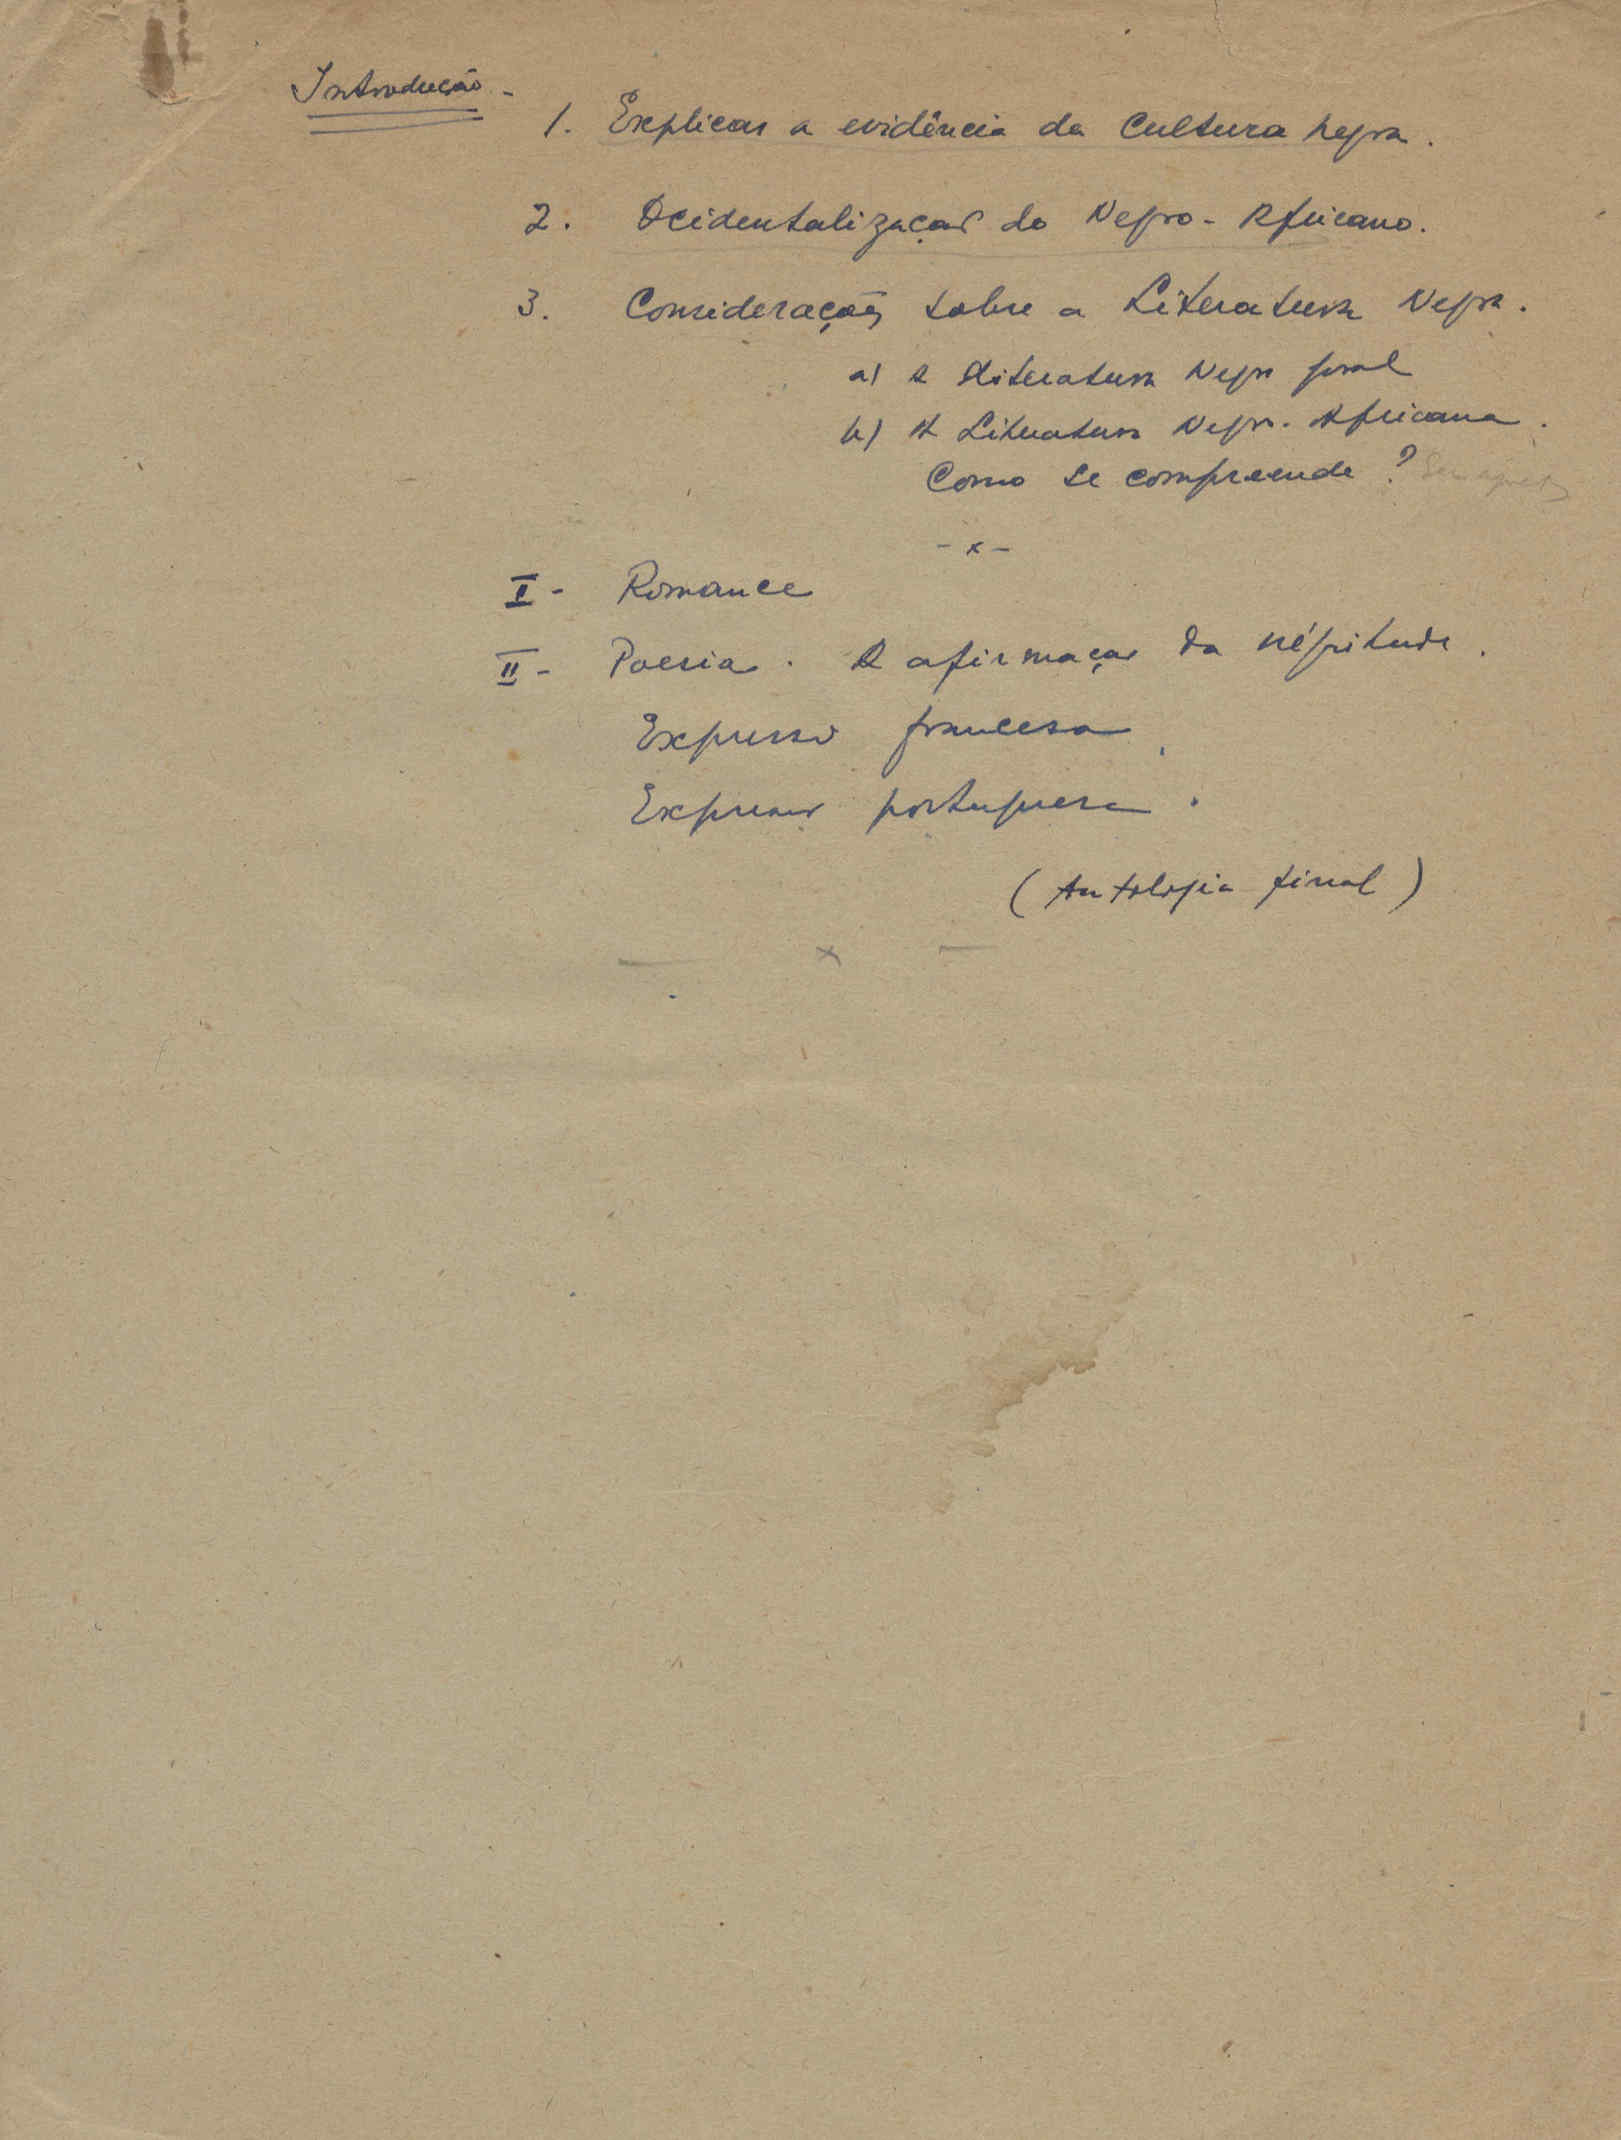 Introdução -
1. Explicar a evidência da Cultura negra.
2. Ocidentalização do Negro-Africano.
3. Considerações sobre a Literatura Negra.
a) A Literatura Negra geral
b) A Literatura Negro-Africana.
Como se compreende?
- x -
I - Romance
II - Poesia. A afirmação da négritude.
Expressão francesa
Expressão portuguesa.
(Antologia final)
— x —